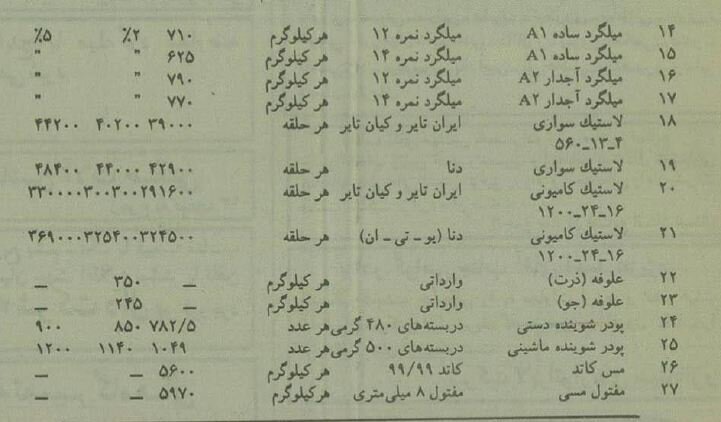 ۱۴ میلگرد ساده A۱ میلگرد نمره ۱۲ هرکیلوگرم ۷۱۰ ۲٪ ۵٪
۱۵ میلگرد ساده A۱ میلگرد نمره ۱۴ هرکیلوگرم ۶۲۵ " "
۱۶ میلگرد آجدار A۲ میلگرد نمره ۱۲ هر کیلوگرم ۷۹۰ " "
۱۷ میلگرد آجدار A۲ میلگرد نمره ۱۴ هر کیلوگرم ۷۷۰ " "
۱۸ لاستیك سواری ایران تایر و کیان تایر هر حلقه ۳۹۰۰۰ ۴۰۲۰۰ ۴۴۲۰۰
۵۶۰_۱۳_۴
۱۹ لاستیك سواری دنا هر حلقه ۴۲۹۰۰ ۴۴۰۰۰ ۴۸۴۰۰
۲۰ لاستیك کامیونی ایران تایر و کیان تایر هر حلقه ۲۹۱۶۰۰ ۳۰۰۳۰۰ ۳۳۰۰۰۰
۱۲۰۰_۲۴_۱۶
۲۱ لاستیك کامیونی دنا (یو - تی - ان) هر حلقه ۳۲۴۵۰۰ ۳۲۵۴۰۰ ۳۶۹۰۰۰
۱۲۰۰_۲۴_۱۶
۲۲ علوفه (ذرت) وارداتی هر کیلوگرم _ ۳۵۰ _
۲۳ علوفه (جو) وارداتی هر کیلوگرم _ ۲۴۵ _
۲۴ پودر شوینده دستی دربسته‌های ۴۸۰ گرمی هر عدد ۷۸۲/۵ ۸۵۰ ۹۰۰
۲۵ پودر شوینده ماشینی دربسته‌های ۵۰۰ گرمی هر عدد ۱۰۴۹ ۱۱۴۰ ۱۲۰۰
۲۶ مس کاتد کاتد ۹۹/۹۹ هر کیلوگرم ۵۶۰۰ _ _
۲۷ مفتول مسی مفتول ۸ میلی‌متری هرکیلوگرم ۵۹۷۰ _ _